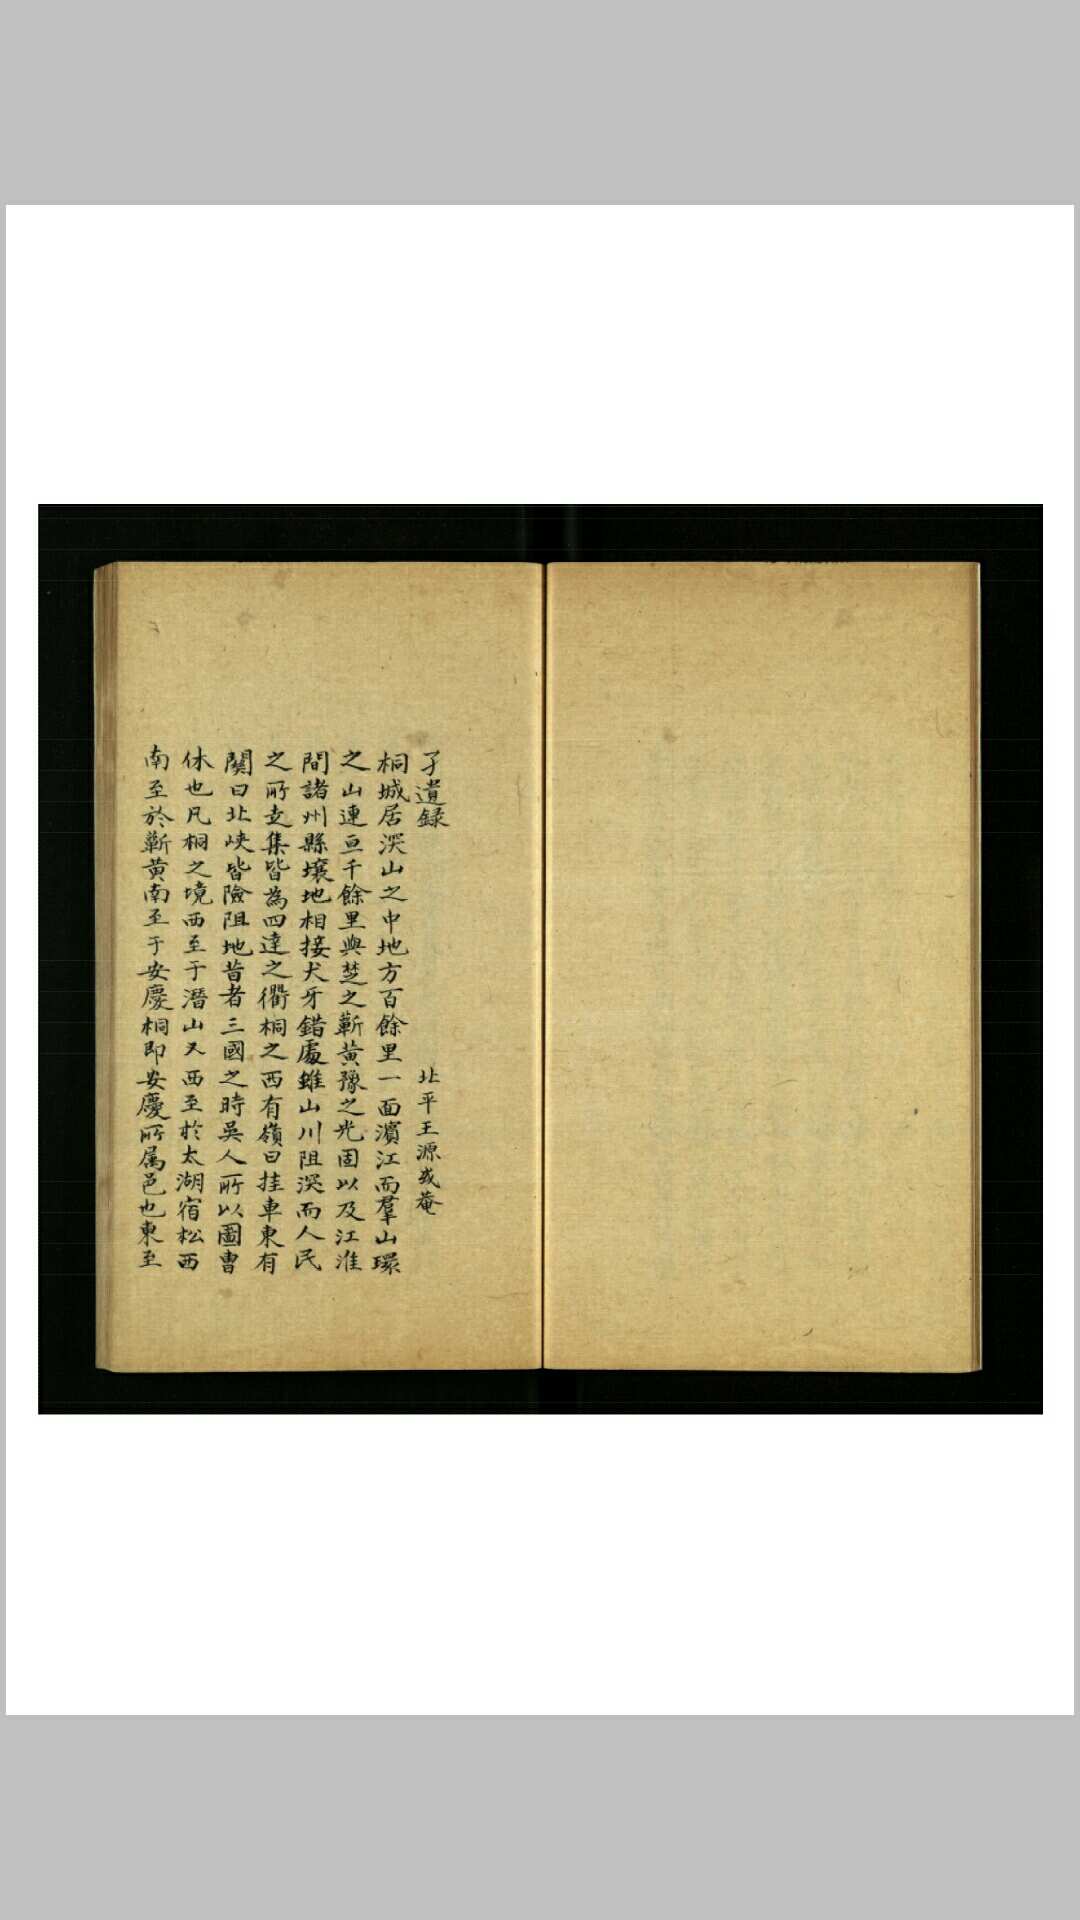 孑遺録
北平王源或菴
桐城居深山之中地方百餘里一面濱江而羣山環
之山連亘千餘里與楚之蘄黃豫之光固以及江淮
間諸州縣壤地相接犬牙錯處雖山川阻深而人民
之所走集皆為四達之衢桐之西有嶺曰挂車東有
関曰北峽皆險阻地昔者三國之時吳人所以圖曹
休也凡桐之境西至于潛山又西至於太湖宿松西
南至於蘄黃南至于安慶桐即安慶所属邑也東至